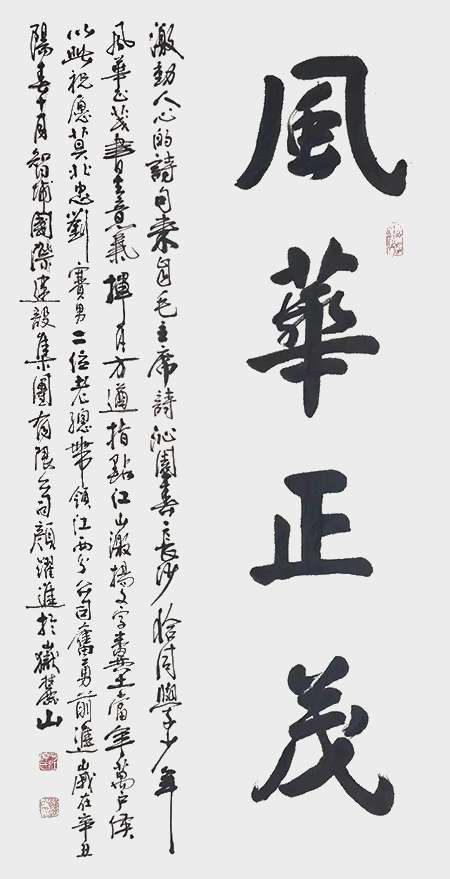 風華正茂
激動人心的詩句來自毛主席詩沁園春長沙恰同學少年
風華正茂書生意氣揮斥方遒指點江山激揚文字糞土當年萬戶侯
以此祝愿莫忠劉賽男二位老總帶領江西分公司奮勇前進歲在辛丑
陽春十月智埔國際建設集團有限公司顏躍進於嶽麓山